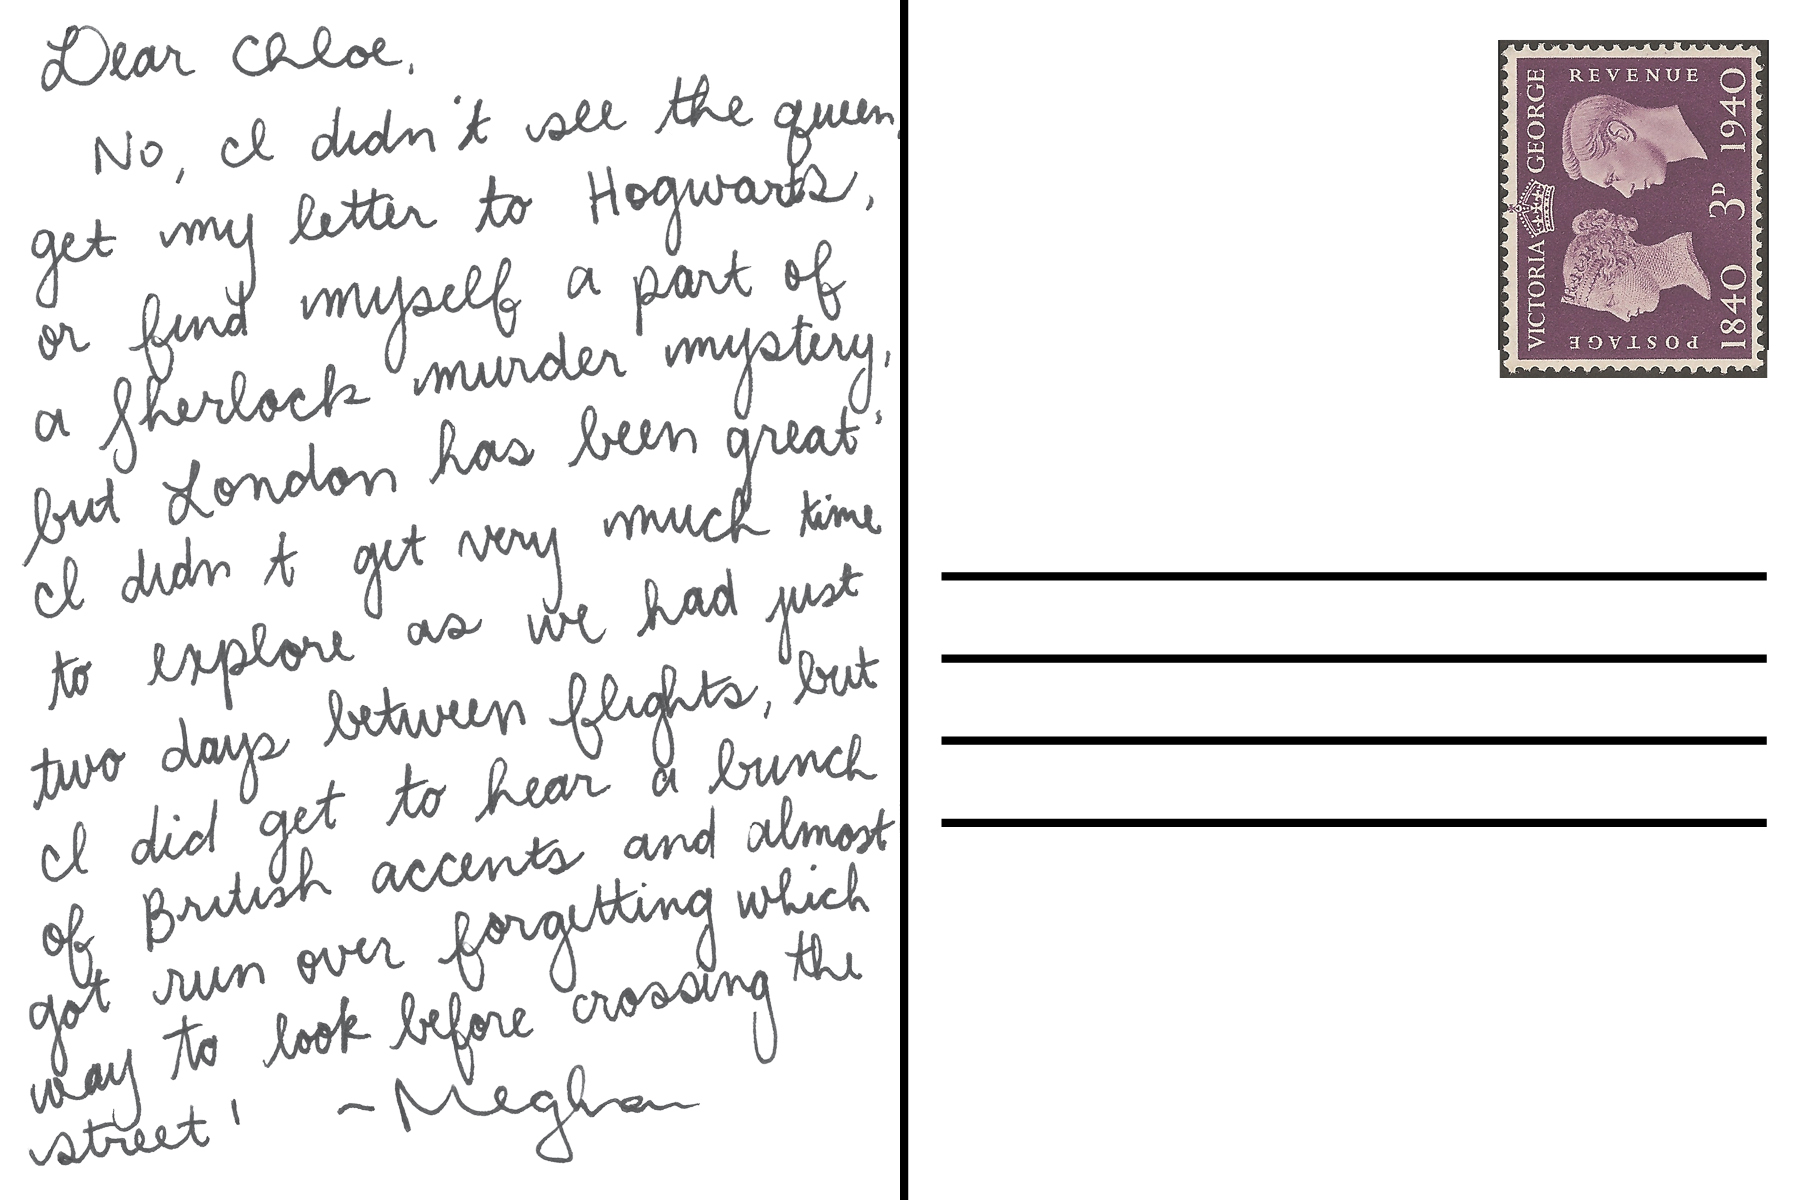 Dear Chloe,
No, I didn't see the queen,
get my letter to Hogwarts,
or find myself a part of
a Sherlock murder mystery,
but London has been great!
I didn't get very much time
to explore as we had just
two days between flights, but
I did get to hear a bunch
of British accents and almost
got run over forgetting which
way to look before crossing the
street! ~Meghan
VICTORIA GEORGE
POSTAGE REVENUE
1840 3D 1940